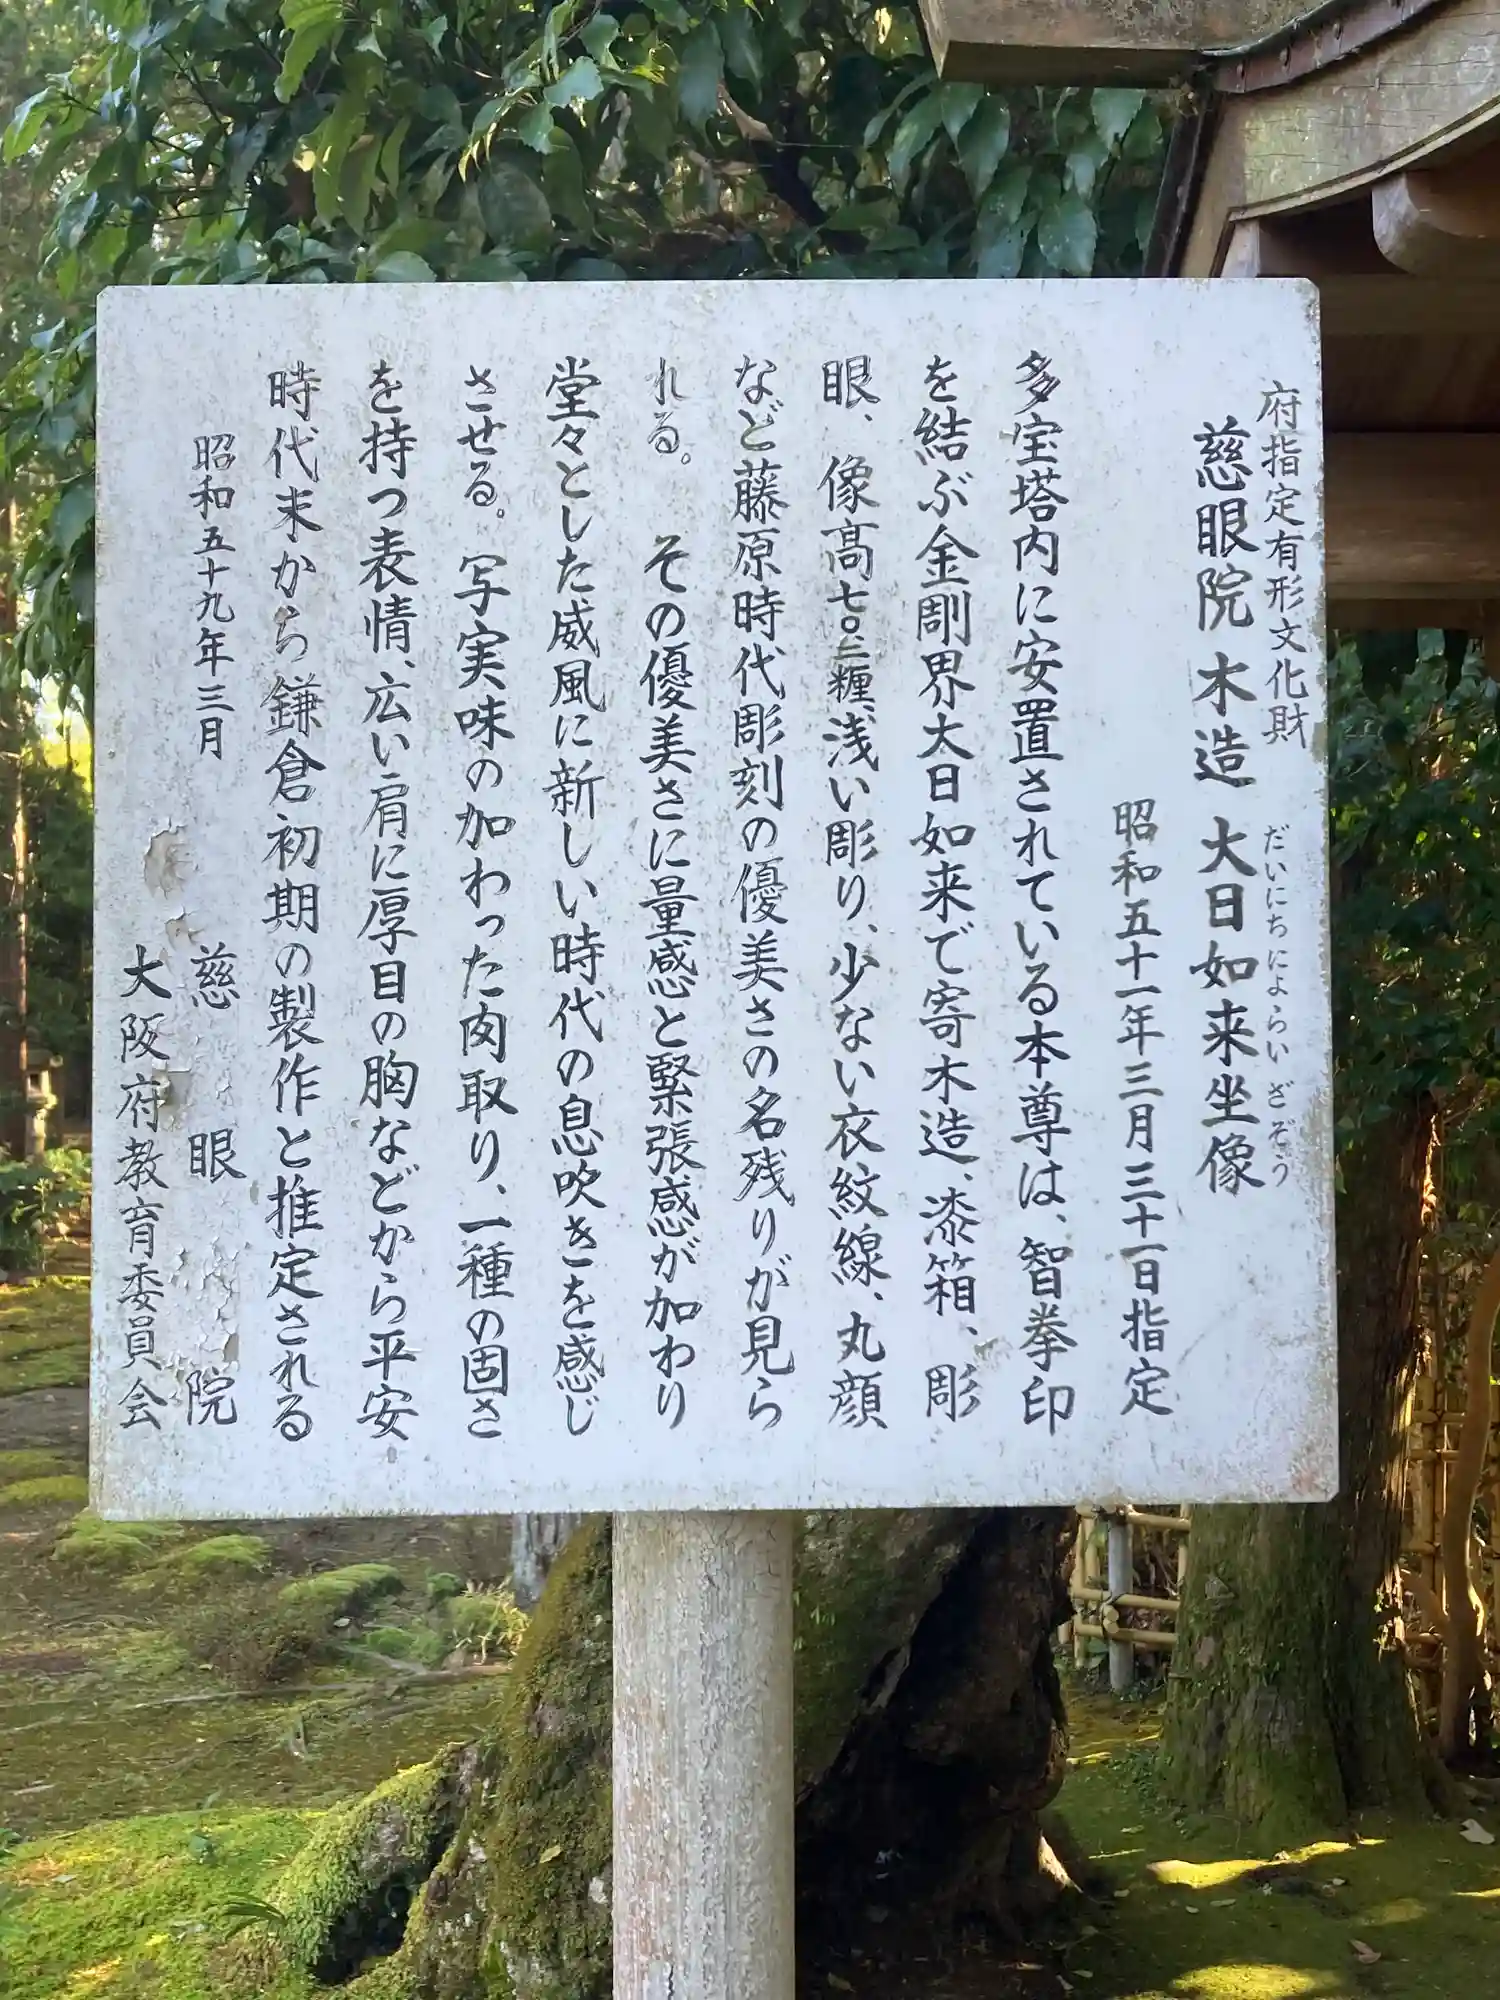 府指定有形文化財
慈眼院 木造 大日如来坐像
だいにちにょらい ざぞう
昭和五十一年三月三十一日指定
多宝塔内に安置されている本尊は、智拳印
を結ぶ金剛界大日如来で寄木造、漆箔、彫
眼、像高七〇.二糎、浅い彫り、少ない衣紋線、丸顔
など藤原時代彫刻の優美さの名残りが見ら
れる。その優美さに量感と緊張感が加わり
堂々とした威風に新しい時代の息吹きを感じ
させる。写実味の加わった肉取り、一種の固さ
を持つ表情、広い肩に厚目の胸などから平安
時代末から鎌倉初期の製作と推定される
昭和五十九年三月
慈眼院
大阪府教育委員会